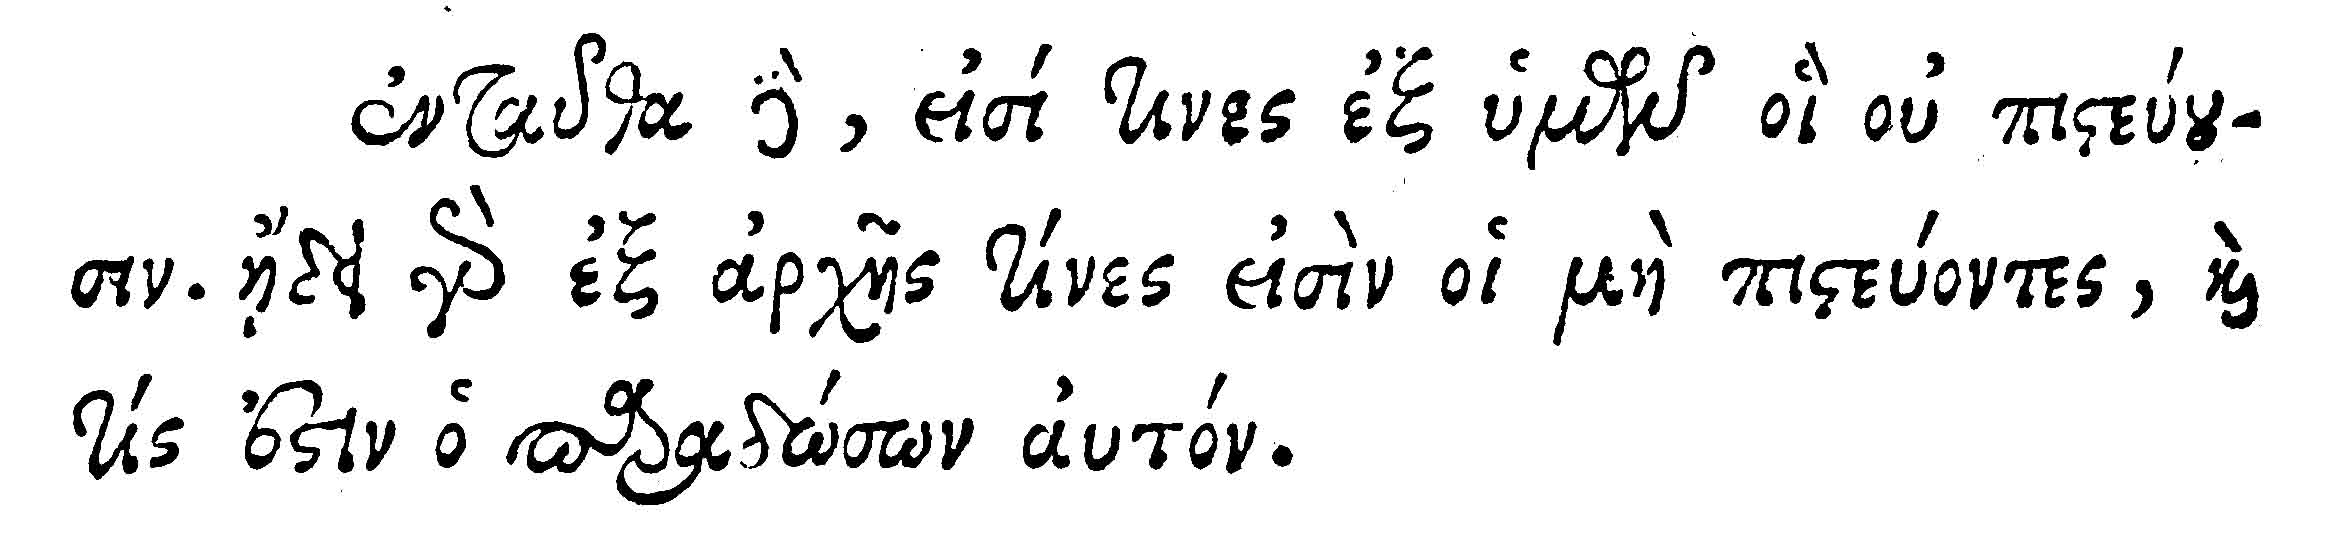 ἐνταῦθα δὲ, εἰσί τινες ἐξ ὑμῶν οἳ οὐ πιστεύου-
σιν. ᾔδει γὰρ ἐξ ἀρχῆς τίνες εἰσὶν οἱ μὴ πιστεύοντες, καὶ
τίς ἐστιν ὁ παραδώσων ἀυτόν.